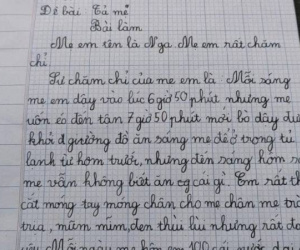 Đề bài Tả mẹ
Bài làm
Mẹ em tên là Nga. Mẹ em rất chăm
chỉ
Sự chăm chỉ của mẹ em là Mỗi sáng
mẹ em dậy vào lúc 6 giờ 50 phút nhưng mẹ
uốn éo đến tận 7 giờ 50 phút mới bò dậy
khỏi giường đồ ăn sáng mẹ để ở trong tủ
lạnh từ hôm trước, nhưng đến sáng hôm
mẹ vẫn không biết ăn cái gì. Em rất th
cắt móng tay móng chân cho mẹ chân mẹ
mũm mĩm, đen thùi lùi nhưng rất
Mỗi ngày mẹ 100 cái